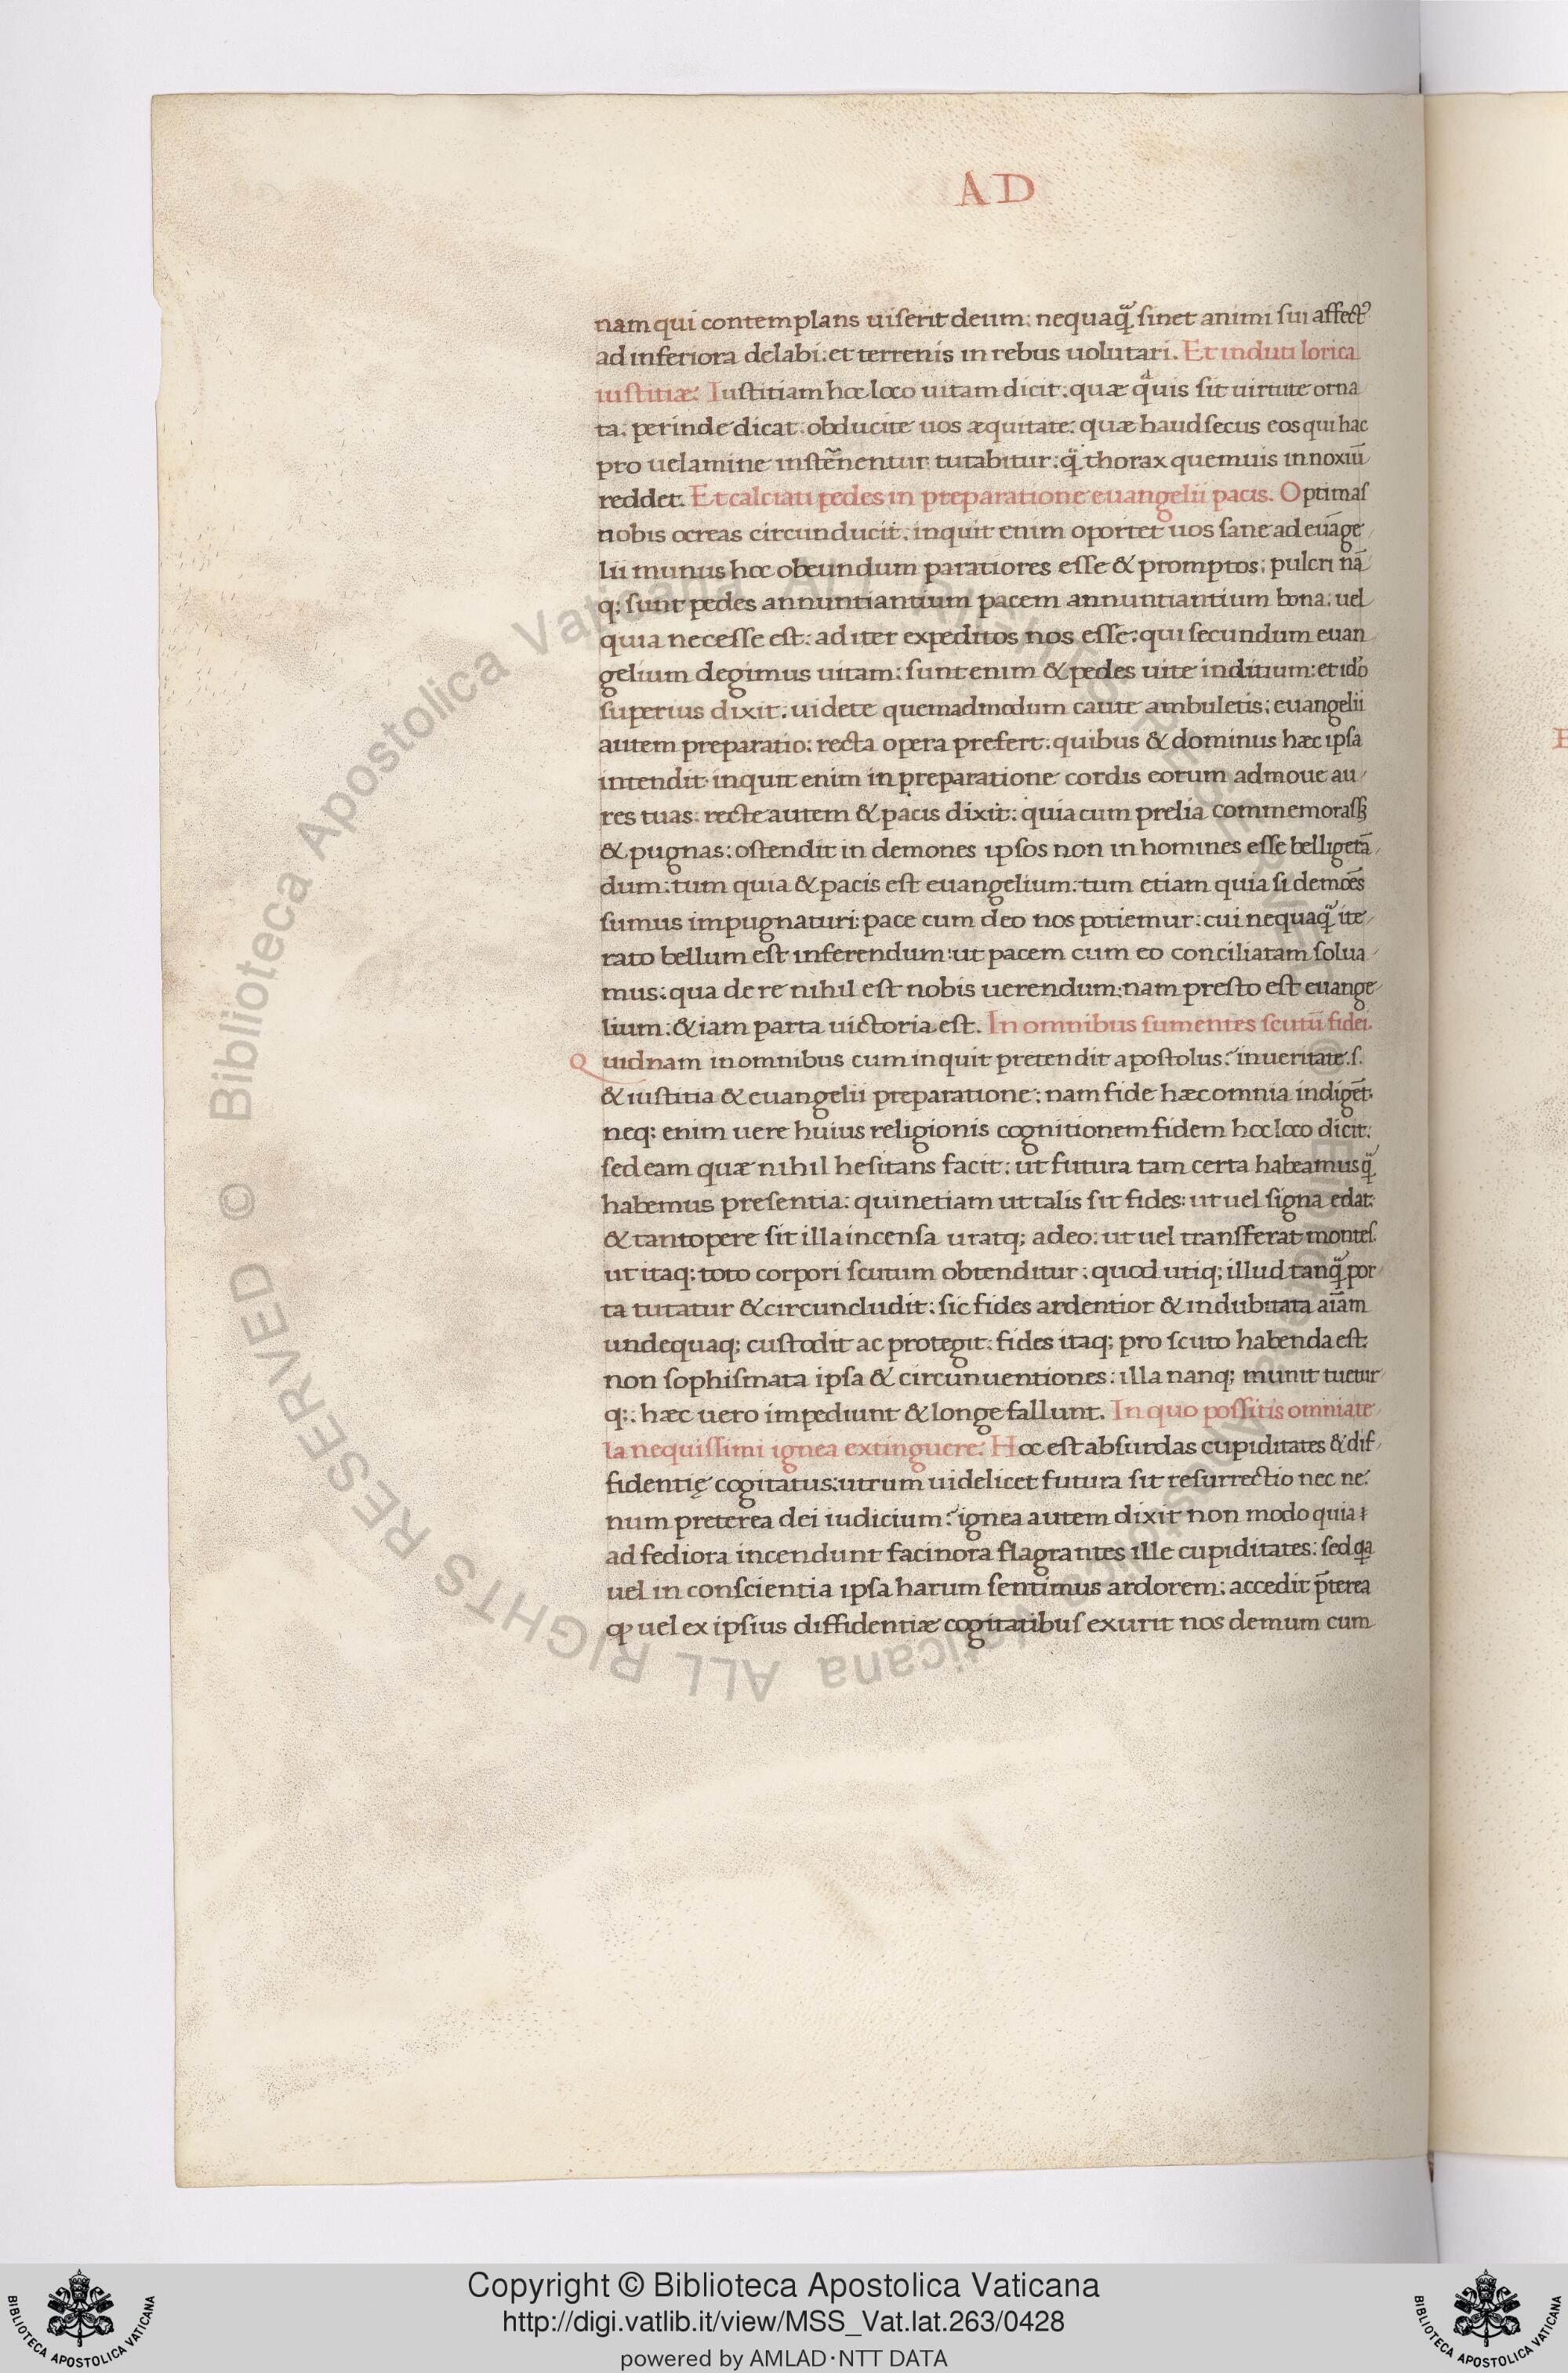 AD
nam qui contemplans uiserit deum: nequaq̃ sinet animi sui affectꝰ
ad inferiora delabi: et terrenis in rebus uolutari. Et induti lorica
iustitiæ: Iustitiam hoc loco uitam dicit: quæ q̃uis sit uirtute orna
ta: perinde dicat: obducite uos æquitate: quæ haud secus eos qui hac
pro uelamine tutabitur: q̃ thorax quemuis innoxiũ
reddet. Et calciati pedes in preparatione euangelii pacis. Optimas
nobis ocreas circunducit: inquit enim oportet uos sane ad euãge
lii munus hoc obeundum paratiores esse & promptos: pulcri nã
q; sunt pedes annuntiantium pacem annuntiantium bona: uel
quia necesse est: ad iter expeditos nos esse: qui secundum euan
gelium degimus uitam: sunt enim & pedes uite inditium: et idº
superius dixit: uidete quemadmodum caute ambuletis: euangelii
autem preparatio: recta opera prefert: quibus & dominus hæc ipsa
intendit inquit enim in preparatione cordis eorum admoue au
res tuas: recte autem & pacis dixit: quia cum prelia commemorasꝫ
& pugnas: ostendit in demones ipsos non in homines esse belligerã
dum: tum quia & pacis est euangelium: tum etiam quia si demoẽs
sumus impugnaturi: pace cum deo nos potiemur: cui nequaq̃ ite
rato bellum est inferendum: ut pacem cum eo conciliatam solua
mus: qua de re nihil est nobis uerendum: nam presto est euange
lium: & iam parta uictoria est. In omnibus sumentes scutũ fidei.
Quidnam in omnibus cum inquit pretendit apostolus? in ueritate .s.
& iustitia & euangelii preparatione: nam fide hæc omnia indigẽt.
neq; enim uere huius religionis cognitionem fidem hoc loco dicit:
sed eam quæ nihil hesitans facit: ut futura tam certa habeamus q̃
habemus presentia: quinetiam ut talis sit fides: ut uel signa edat:
& tantopere sit illa incensa uratq; adeo: ut uel transferat montes.
ut itaq; toto corpori scutum obtenditur: quod utiq; illud tanq̃ por
ta tutatur & circuncludit: sic fides ardentior & indubitata aĩam
undequaq; custodit ac protegit: fides itaq; pro scuto habenda est:
non sophismata ipsa & circunuentiones: illa nanq; munit tuetur
q;: hæc uero impediunt & longe fallunt. In quo possitis omnia te
la nequissimi ignea extinguere: Hoc est absurdas cupiditates & dif
fidentię cogitatus: utrum uidelicet futura sit resurrectio nec ne:
num preterea dei iudicium? ignea autem dixit non modo quia
ad fediora incendunt facinora flagrantes ille cupiditates: sed qa
uel in conscientia ipsa harum sentimus ardorem: accedit p̃terea
ꝙ uel ex ipsius diffidentiæ cogitatibus exurit nos demum cum
Copyright © Biblioteca Apostolica Vaticana
http://digi.vatlib.it/view/MSS_Vat.lat.263/0428
powered by AMLAD·NTT DATA